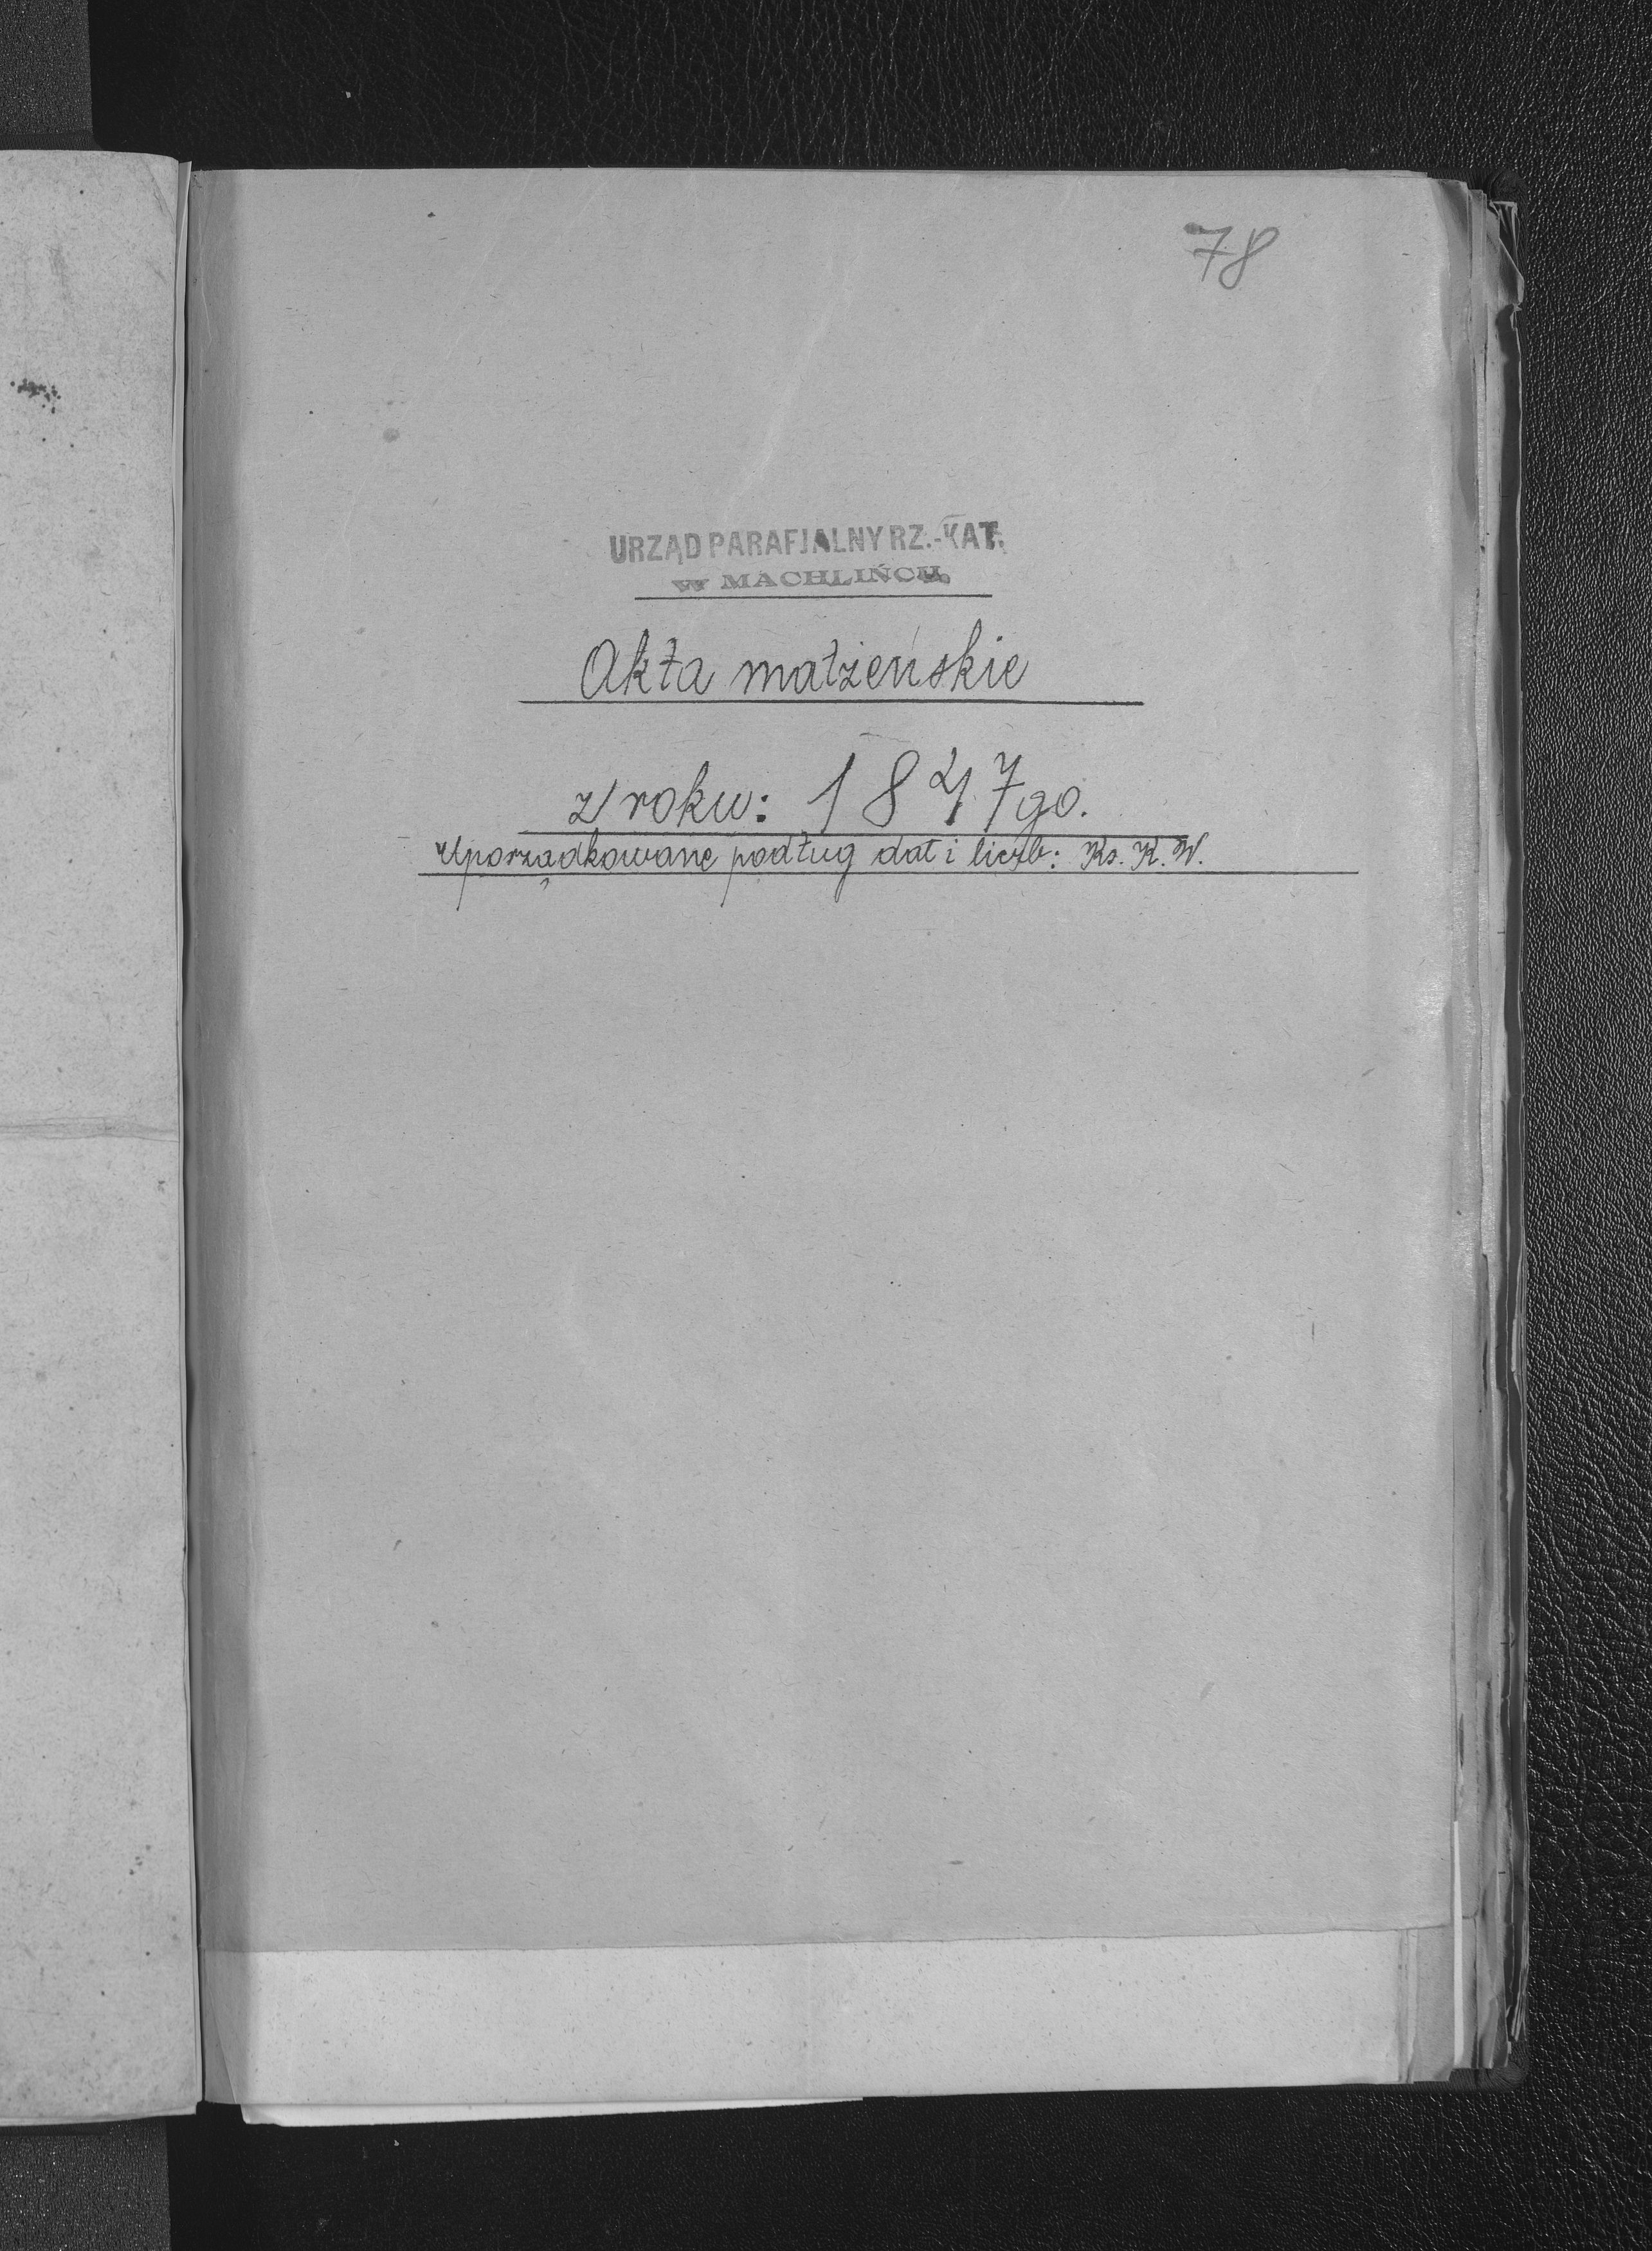 78
URZĄD PARAFJALNY RZ.-KAT.
W MACHLIŃCU.
Akta małżeńskie
z roku: 1847go.
Uporządkowane podług dat i liczb: Ks. K. W.